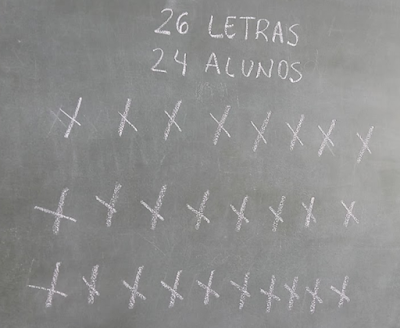 26 LETRAS
24 ALUNOS
X X X X X X X X
X X X X X X X X
X X X X X X X X X X